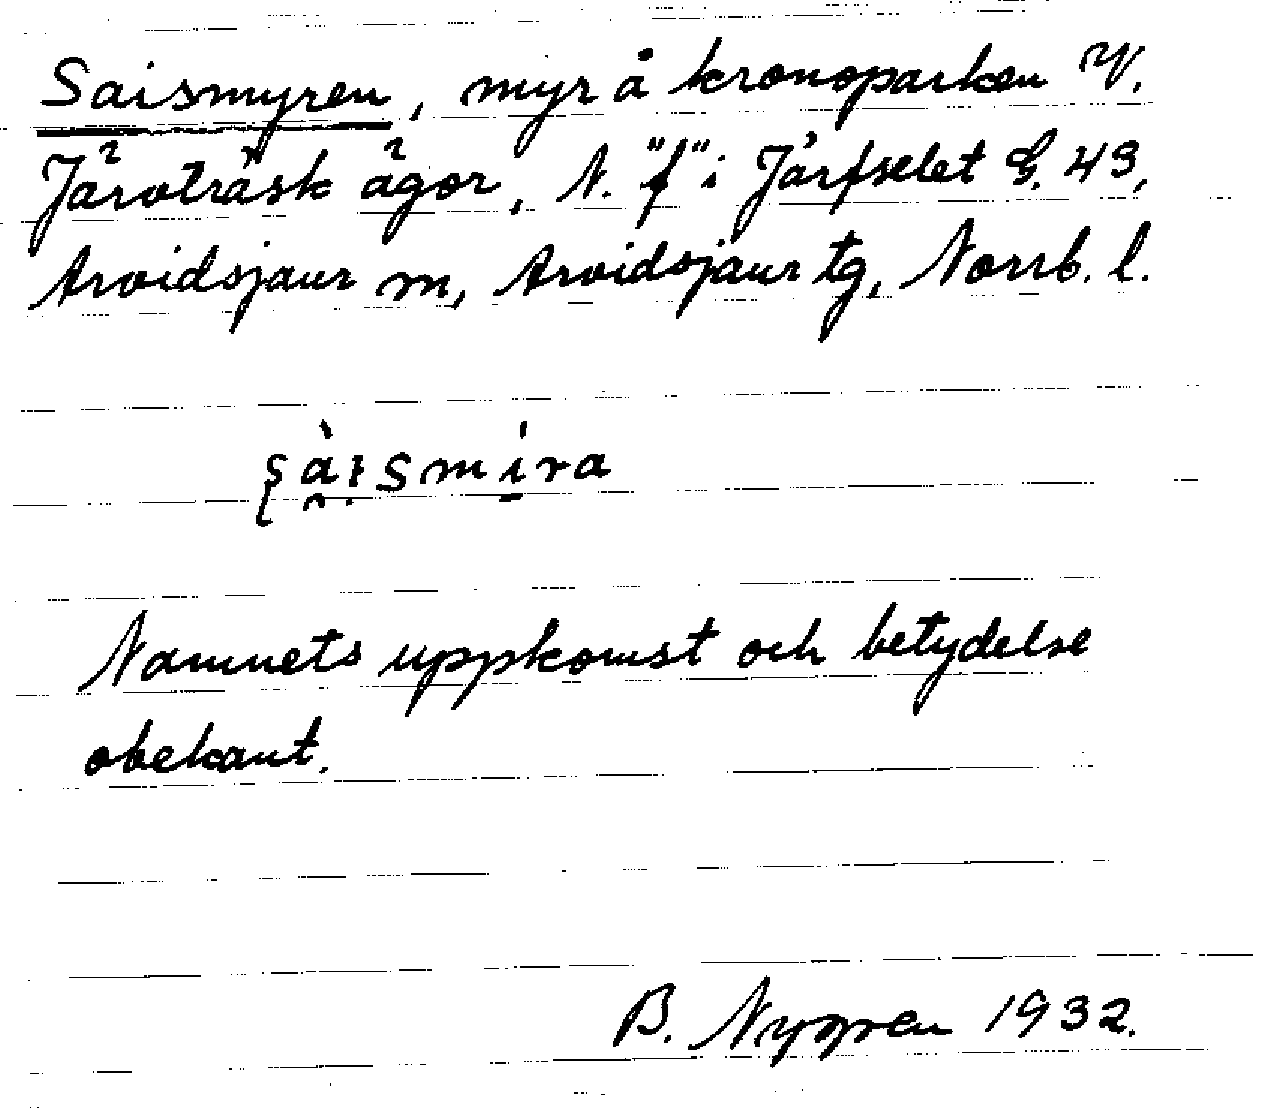 Saismyren, myr å kronoparken V.
Järvträsk ägor, N. "f" i Järfselet G. 43,
Arvidsjaur sn, Arvidsjaur tg, Norrb. l.
Namnets uppkomst och betydelse
obekant.
B. Nygren 1932.